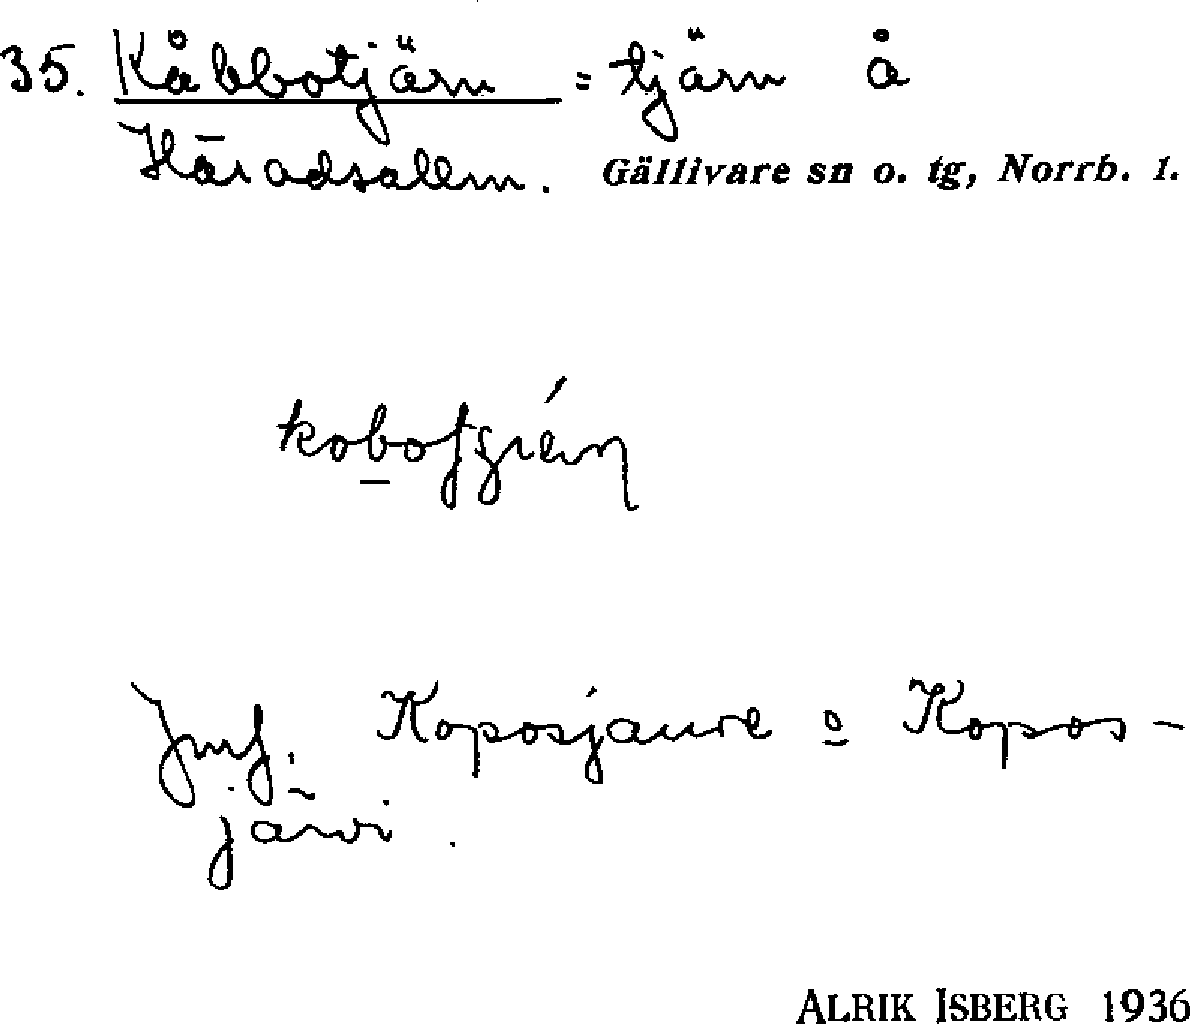 35. Kåbbotjärn = tjärn å
Häradsallm. Gällivare sn o. tg, Norrb. l.
Jmf. Koposjaure o Kopos-
järvi.
ALRIK ISBERG 1936